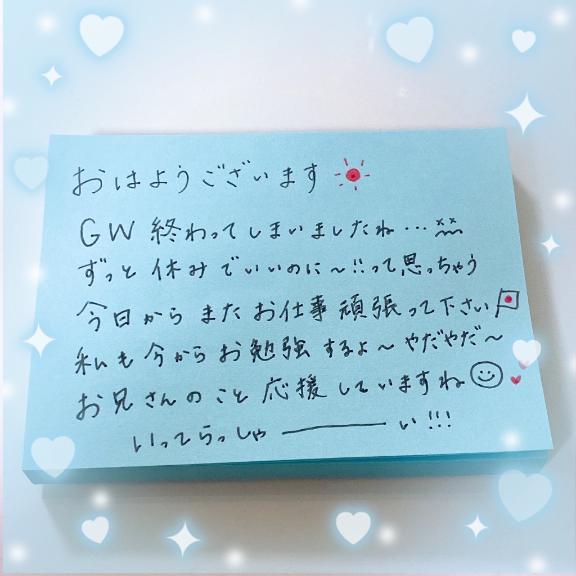 おはようございます
GW 終わってしまいましたね…
ずっと休みでいいのに～!!って思っちゃう
今日からまたお仕事頑張って下さい
私も今からお勉強するよ～やだやだ～
お兄さんのこと応援していますね
いってらっしゃーい!!!